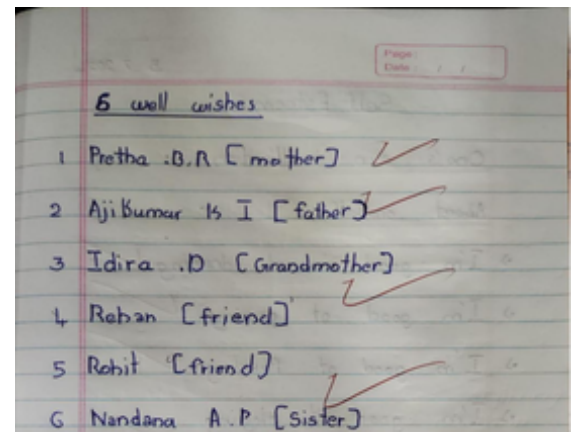 Page:
Date: / /
6 well wishes
1 Pretha .B.R [mother]
2 Ajikumar K I [father]
3 Idira .D [Grandmother]
4 Rohan [friend]
5 Rohit [friend]
6 Nandana A.P [Sister]